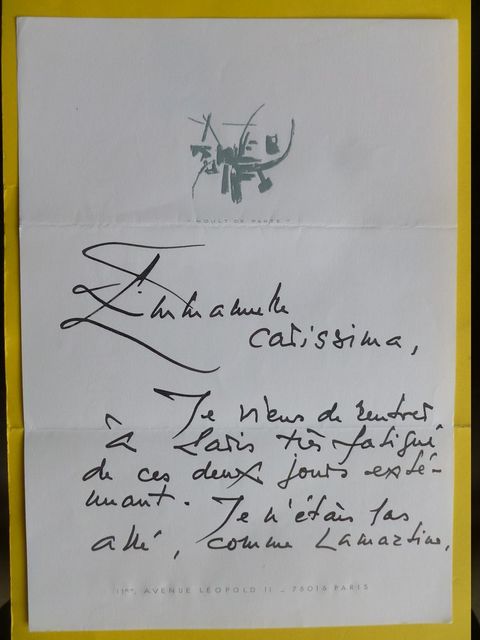 Emmanuelle
carissima,
Je viens de rentrer
à Paris très fatigué
de ces deux jours exté-
nuant. Je n'étais pas
allé, comme Lamartine,
AVENUE LÉOPOLD II _ 75016 PARIS